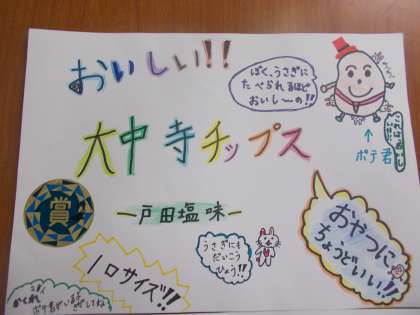 おいしい!!
ぼく、うさぎに
たべられるほど
おいし〜の!!
大中寺チップス
ポテ君
賞
ー戸田塩味ー
うさぎにも
だいこう
ひょう!!
おやつに
ちょうどいい!!
1口サイズ!!
かくれ
ポテ君がいるよ
さがしてね